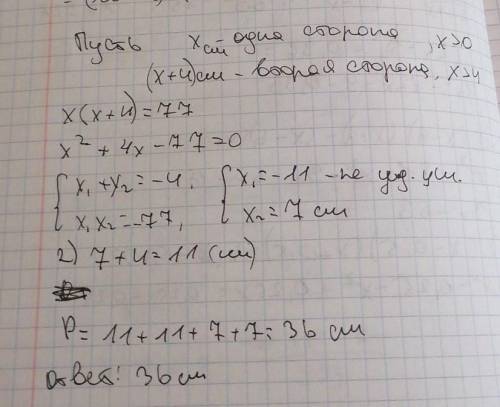 Пусть x см одна сторона, x>0
(x+4)см - вторая сторона, x>4
x(x+4)=77
x²+4x-77=0
{ x₁+x₂=-4, { x₁=-11 - не уд. ум.
{ x₁x₂=-77, { x₂=7 см
2) 7+4=11 (см)
P=11+11+7+7=36 см
Ответ: 36 см